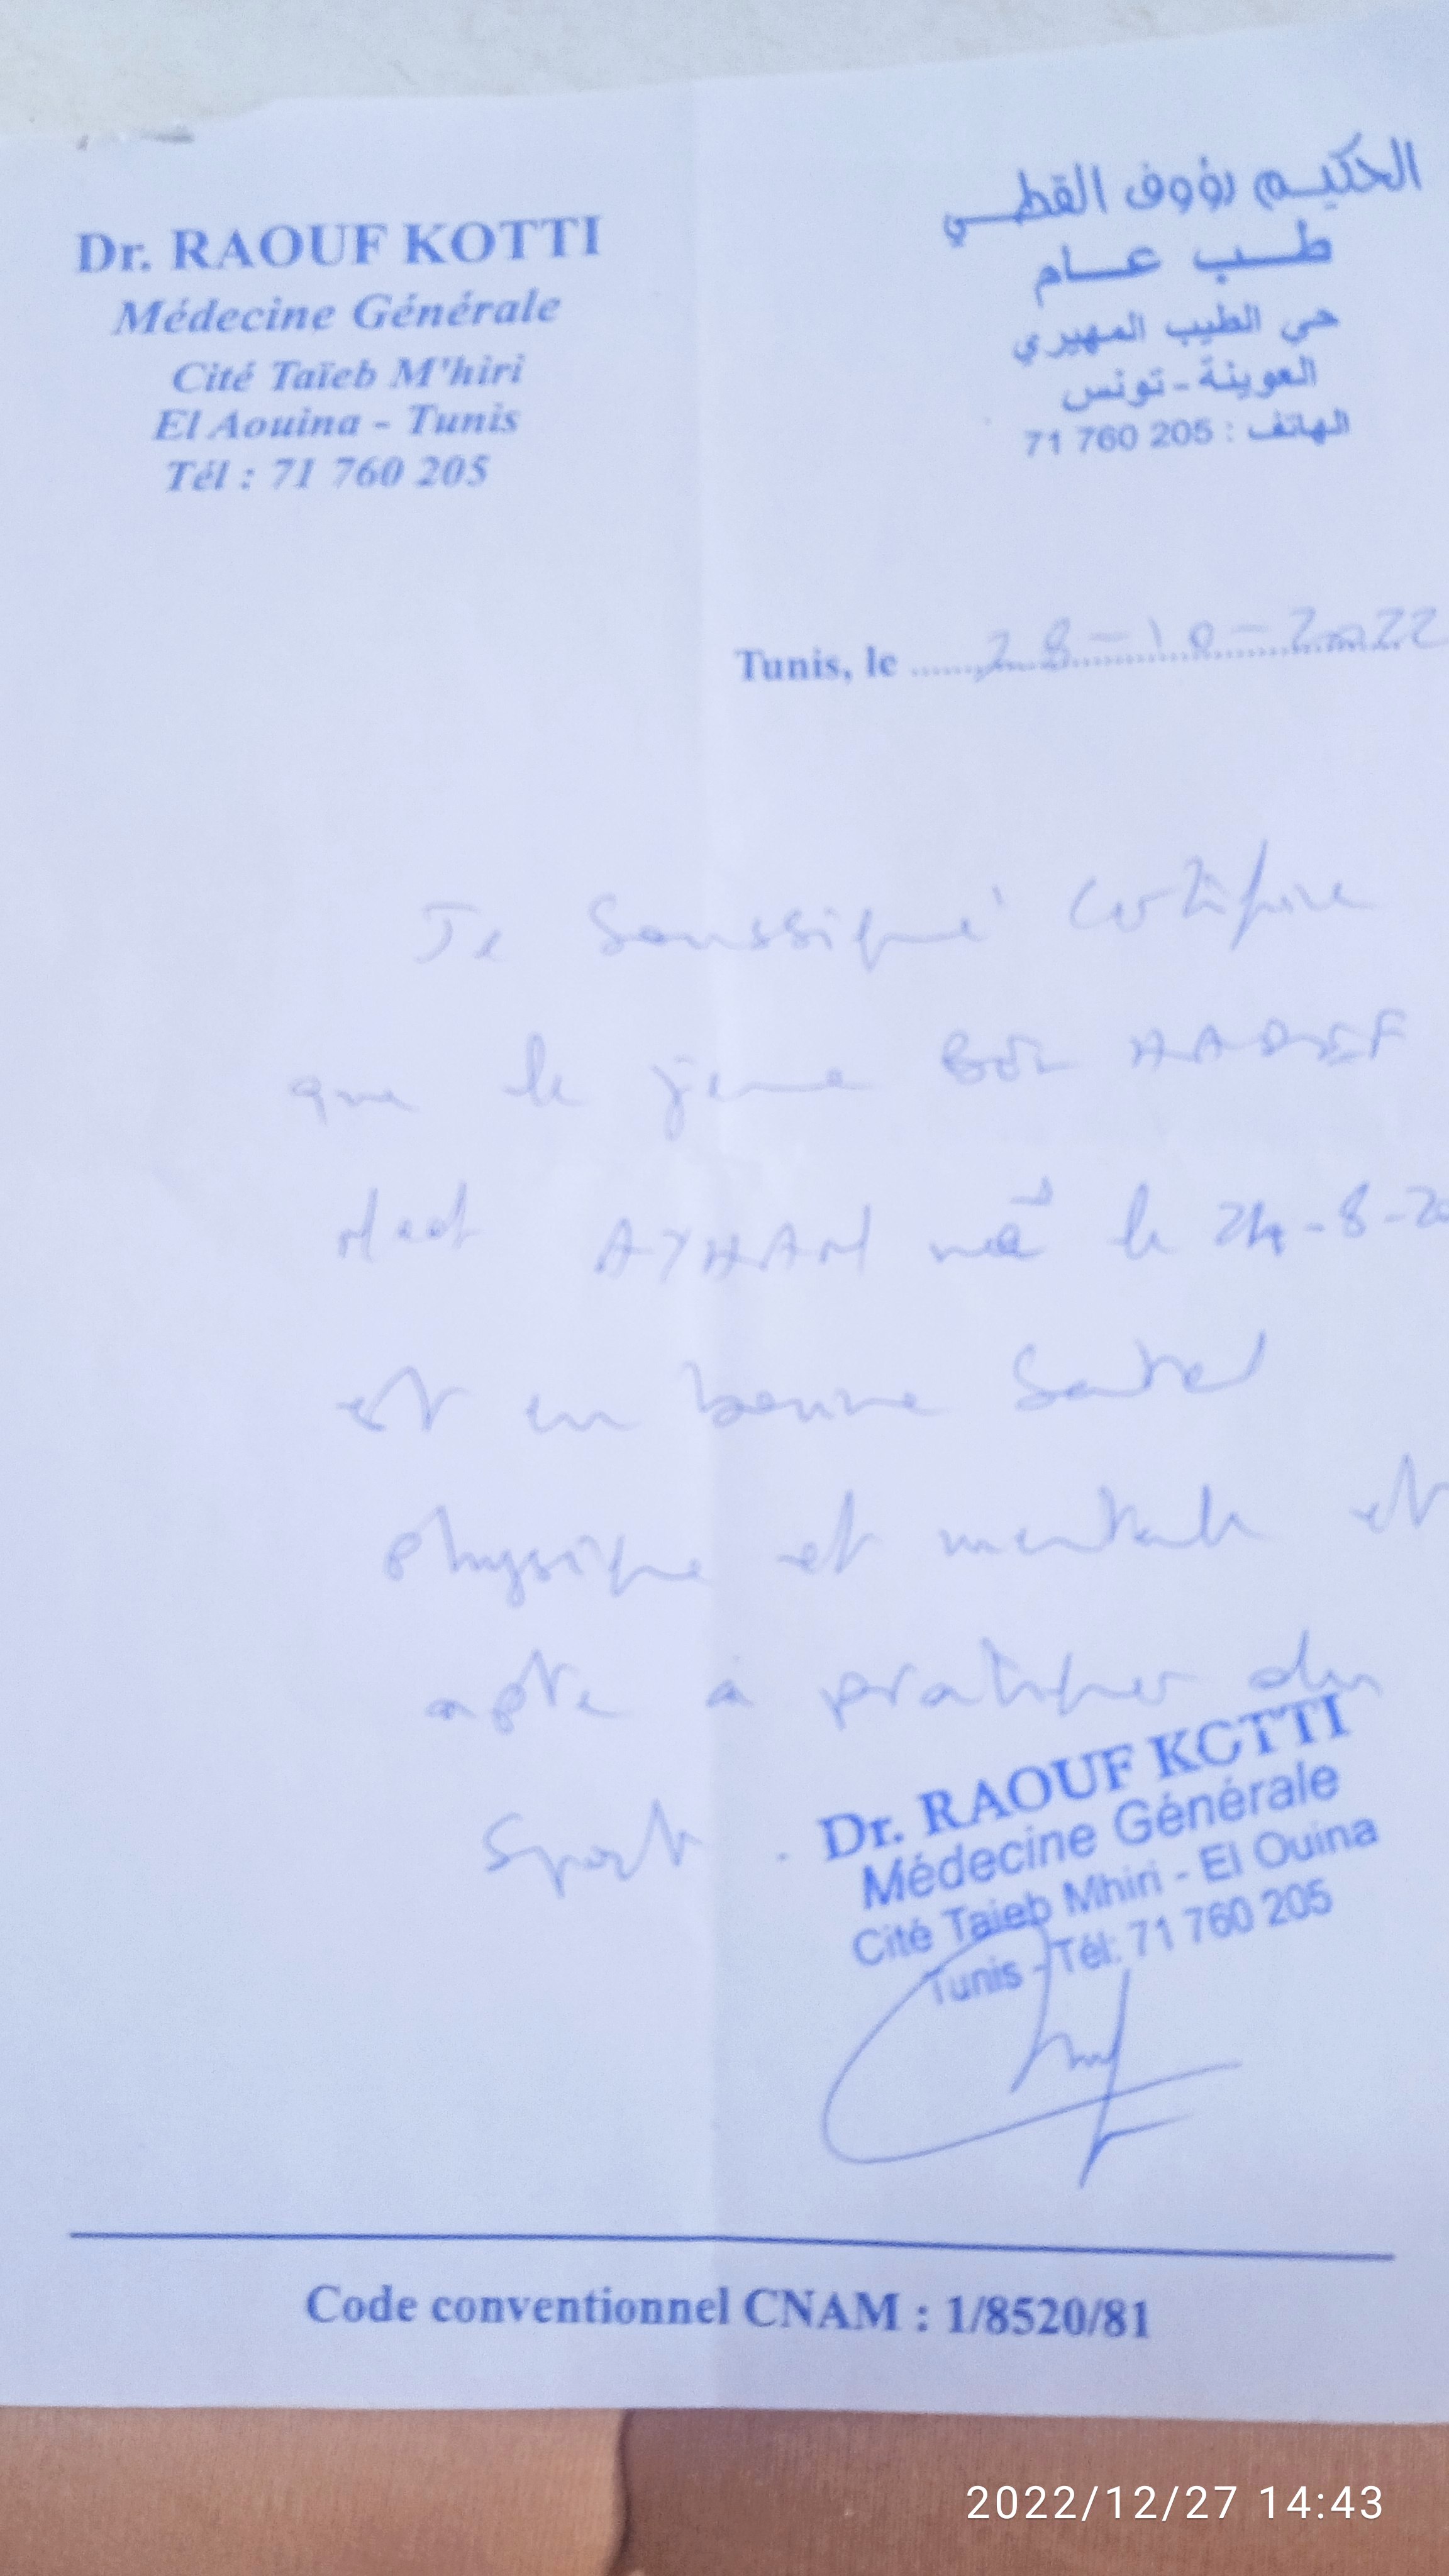 Dr. RAOUF KOTTI
Médecine Générale
Cité Taïeb M'hiri
El Aouina - Tunis
Tél : 71 760 205
الحكيم رؤوف القطي
طب عام
حي الطيب المهيري
العوينة - تونس
الهاتف : 205 760 71
Tunis, le 28-10-2022
Je Soussigné Certifie
que le jeune
AYHAM né le 24-8-20
est en bonne Santé
physique et mentale et
apte à pratiquer du
Sport .
Dr. RAOUF KOTTI
Médecine Générale
Cité Taieb Mhiri - El Ouina
Tunis - Tél: 71 760 205
Code conventionnel CNAM : 1/8520/81
2022/12/27 14:43